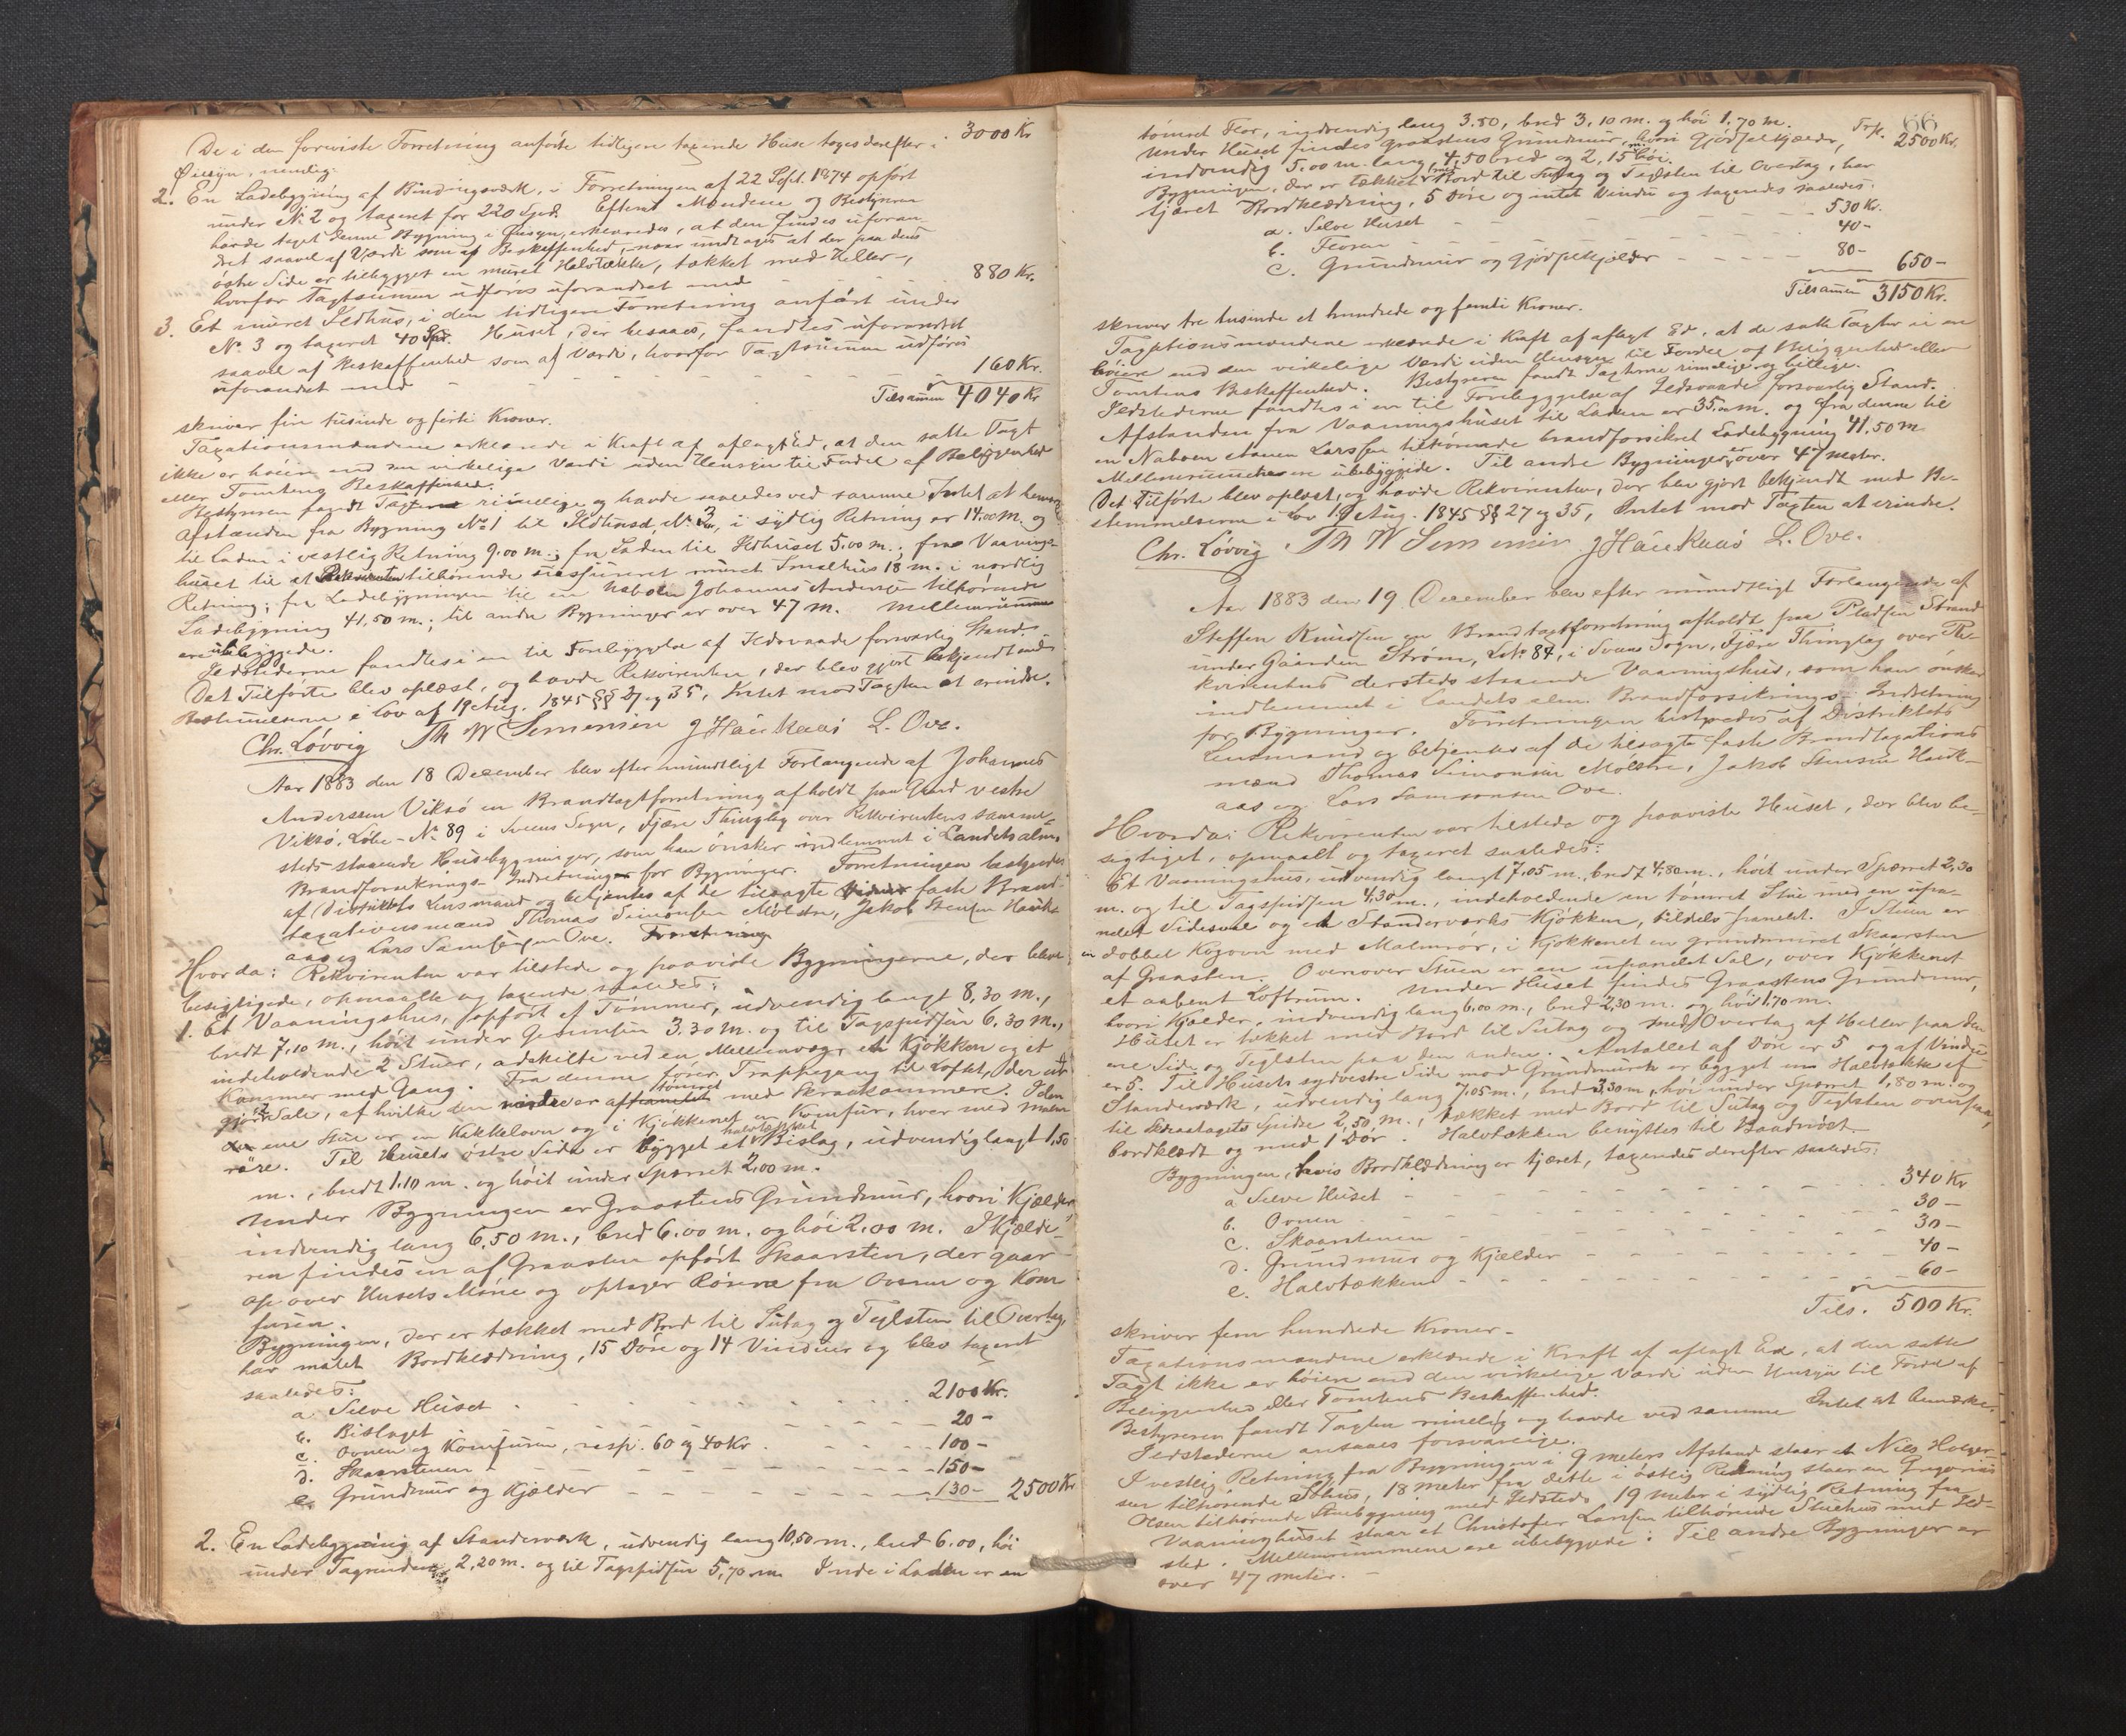 De i den foreviste Forretning anførte tidligere taxerede Huse toges derefter i 3000 Kr
Øiesyn, nemlig:
2. En Ladebygning af Bindingsværk, i Forretningen af 22 Sept. 1874 opført
under N. 2 og taxeret for 220 Spd. Efterat Mændene og Bestyreren
havde taget denne Bygning i Øiesyn, erklæredes, at den findes uforan-
dret saavel af Værdi som af Beskaffenhed, naar undtages at der paa dens
østre Side er tilbygget en muret Halvtække, tækket med Heller,
hvorfor Taxtsummen udføres uforandret med - - 880 Kr.
3. Et muret Ildhus, i den tidligere Forretning anført under
No. 3 og taxeret 40 Spd. Huset, der besaaes, fandtes uforandret
saavel af Beskaffenhed som af Værdi, hvorfor Taxtsummen udføres
uforandret med - - - - - 160 Kr.
Tilsammen 4040 Kr
skriver fire tusinde ogførti Kroner.
Taxationsmændene erklærede i Kraft af aflagt Ed, at den satte Taxt
ikke er høiere end den virkelige Værdi uden Hensyn til Fordel af Beliggenhed
eller Tomtens Beskaffenhed.
Bestyreren fandt Taxterne rimelige og havde saaledes ved samme Intet at bemærke
Afstanden fra Bygning No 1 til Ildhuset No. 3, i sydlig Retning er 14.00 M. og
til Laden i vestlig Retning 9.00 m.; fra Laden til Ildhuset 5.00 m.; fra Vaanings-
huset til et Rekvirenten tilhørende uassureret muret Smalhus 18 m. i nordlig
Retning; fra Ladebygningen til en Naboen Johannes Andersen tilhørende
Ladebygning 41,50 m.; til andre Bygninger er over 47 m. Mellemrummene
ere ubebyggede.
Ildstederne fandtes i en til Forebyggelse af Ildsvaade forsvarlig Stand.
Det Tilførte blev oplæst, og havde Rekvirenten, der blev gjort bekjendt med
Bestemmelserne i Lov af 19 Aug. 1845 §§ 27 og 35, Intet mod Taxten at erindre.
Chr. Løvvig Th W Simonsen J Haukaas L. Ove.
Aar 1883 den 18 December blev efter mundtligt Forlangende af Johannes
Anderssen Viksø en Brandtaxtforretning afholdt paa Gaard vestre
Viksø, Løbe-No 89 i Sveens Sogn, Fjære Thinglag over Rekvirentens samme-
steds staaende Husebygninger, som han ønsker indlemmet i Landets alm.
Brandforsikrings-Indretninger for Bygninger. Forretningen bestyredes
af Distriktets Lensmand og betjentes af de tilsagte faste Brand-
taxationsmænd Thomas Simonsen Mølstre, Jakob Stensen Hauk-
aas og Lars Samsonsen Ove.
Hvorda: Rekvirenten var tilstede og paaviste Bygningerne, der bleve
besigtigede, opmaalte og taxerede saaledes:
1. Et Vaaningshus, opført af Tømmer, udvendig langt 8,30 m.,
bredt 7,10 m., høit under Gesimsen 3.30 m. og til Tagspidsen 6,30 m.,
indeholdende 2 Stuer, adskilte ved en Mellemvæg, et Kjøkken og et
Kammer med Gang. Fra denne fører Trappegang til Loftet, der ud-
gjør 2 Sale, af hvilke den er tømret med Skraakammere. I den
ene Stue er en Kakkelovn og i Kjøkkenet en Komfur, hver med Malm-
røre. Til Husets østre Side er bygget et halvtækket Bislag, udvendig langt 1,50
m., bredt 1.10 m. og høit under Spærret 2,00 m.
Under Bygningen er Graastens Grundmur, hvori Kjælder,
indvendig lang 6,50 m., bred 6.00 m. og høi 2,00 m. I Kjælde-
ren findes en af Graasten opført Skaarsten, der gaar
op over Husets Møne og optager Rørene fra Ovnen og Kom-
furen.
Bygningen, der er tækket med Bord til Sutag og Teglsten til Overtag,
har malet Bordklædning, 15 Døre og 14 Vinduer og blev taxeret
saaledes:
a. Selve Huset - - - - - 2100 Kr.
b. Bislaget - - - - - 20 -
c. Ovnen og Komfuren, resp. 60 og 40 Kr - - 100 -
d. Skaarstenen - - - - - 150 -
e. Grundmur og Kjælder - - - - 130 - 2500 Kr
2. En Ladebygning af Standerværk, udvendig lang 10,50 m., bred 6.00, høi
under Tagrenden 2,20 m. og til Tagspidsen 5,70 m. Inde i Laden er en
66
tømret Flor, indvendig lang 3.50, bred 3,10 m. og høi 1,70 m. Trsp. 2500 Kr.
Under Huset findes Graastens Grundmur, hvori Gjødselkjælder,
indvendig 5.00 m. lang, 4,50 m bred og 2,15 høi.
Bygningen, der er tækket med Bord til Sutag og Teglsten til Overtag, har
tjæret Bordklædning, 5 Døre og intet Vindu og taxeredes saaledes:
a. Selve Huset - - - - 530 Kr.
b. Floren - - - - 40 -
c. Grundmur og Gjødselkjælder - - - 80 - 650 -
Tilsammen 3150 Kr.
skriver tre tusinde et hundrede og femti Kroner.
Taxationsmændene erklærede i Kraft af aflagt Ed, at de satte Taxter ei er
høiere end den virkelige Værdi uden Hensyn til Fordel af Beliggenhed eller
Tomtens Beskaffenhed. Bestyreren fandt Taxterne rimelige og billige.
Ildstederne fandtes i en til Forebyggelse af Ildsvaade forsvarlig Stand.
Afstanden fra Vaaningshuset til Laden er 35.00 m. og fra denne til
en Naboen Larssen tilhørende brandforsikret Ladebygning 41.50 m
Mellemrummene ere ubebyggede. Til andre Bygninger er over 47 meter.
Det Tilførte blev oplæst, og havde Rekvirenten, der blev gjort bekjendt med Be-
stemmelserne i Lov 19 Aug. 1845 §§ 27 og 35, Intet mod Taxten at erindre.
Chr. Løvvig Th W Simonsen J Haukaas L. Ove.
Aar 1883 den 19 December blev efter mundtligt Forlangende af
Steffen Knudsen en Brandtaxtforretning afholdt paa Pladsen Strand
under Gaarden Strøm, LNo. 84, i Sveens Sogn, Fjære Thinglag over Re-
kvirentens dersteds staaende Vaaningshus, som han ønsker
indlemmet i Landets alm. Brandforsikrings-Indretning
for Bygninger. Forretningen bestyredes af Distriktets
Lensmand og betjentes af de tilsagte faste Brandtaxations
mænd Thomas Simonsen Mølstre, Jakob Stensen Hauk-
aas og Lars Samsonsen Ove.
Hvorda: Rekvirenten var tilstede og paaviste Huset, der blev be-
sigtiget, opmaalt og taxeret saaledes:
Et Vaaningshus, udvendig langt 7,05 m., bredt 4,80 m., høit under Spærret 2,30
m. og til Tagspidsen 4,30 m., indeholdende en tømret Stue med en upa-
nelet Sidesval og et Standerværks Kjøkken, tildels panelet. I Stuen er
en dobbel Kogovn med Malmrør, i Kjøkkenet en grundmuret Skaarsten
af Graasten. Ovenover Stuen er en upanelet Sal, over Kjøkkenet
et aabent Loftrum. Under Huset findes Graastens Grundmur,
hvori Kjælder, indvendig lang 6.00 m., bred 2,30 m. og høi 1,70 m.
Huset er tækket med Bord til Sutag og med Overtag af Heller paa den
ene Side og Teglsten paa den anden. Antallet af Døre er 5 og af Vinduer
er 5. Til Husets sydvestre Side mod Grundmuren er bygget en Halvtække af
Standerværk, udvendig lang 7.05 m., bred 3,30 m, høi under Spærret 1,80 m. og
til Skraatagets Spidse 2,50 m., tækket med Bord til Sutag og Teglsten ovenpaa,
bordklædt og med 1 Dør. Halvtækken benyttes til Baadnøst.
Bygningen, hvis Bordklædning er tjæret, taxeredes derefter saaledes:
a Selve Huset - - - - - 340 Kr
b. Ovnen - - - - - 30 -
c. Skaarstenen - - - - - 30 -
d. Grundmur og Kjælder - - - - 40 -
e. Halvtækken - - - - - 60 -
Tils. 500 Kr.
skriver fem hundrede Kroner -
Taxationsmændene erklærede i Kraft af aflagt Ed, at den satte
Taxt ikke er høiere end den virkelige Værdi uden Hensyn til Fordel af
Beliggenhed eller Tomtens Beskaffenhed.
Bestyreren fandt Taxten rimelig og havde ved samme Intet at bemærke.
Ildstederne ansaaes forsvarlige.
I vestlig Retning fra Bygningen i 9 meters Afstand staar et Niels Holger-
sen tilhørende Søhus, 18 meter fra dette i østlig Retning staar en Gregorius
Olsen tilhørende Stuebygning med Ildsted. 19 meter i sydlig Retning fra
Vaaninghuset staar et Christofer Larssen tilhørende Stuehus med Ild-
sted. Mellemrummene ere ubebyggede. Til andre Bygninger er
over 47 meter. -